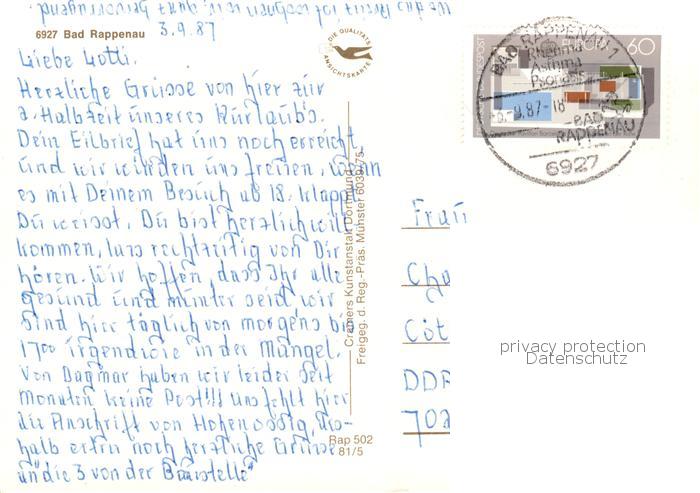 6927 Bad Rappenau 3.9.87
Liebe Lotti.
Herzliche Grüsse von hier zur
2. Halbzeit unseres Kurlaubs.
Dein Eilbrief hat uns noch erreicht
und wir würden uns freuen, wenn
es mit Deinem Besuch ab 18. klappt
Du weisst, Du bist herzlich will-
kommen, lass rechtzeitig von Dir
hören. Wir hoffen, dass Ihr alle
gesund und munter seid wir
sind hier täglich von morgens bis
17oo irgendwie in der Mangel.
Von Dagmar haben wir leider seit
Monaten keine Post!!! uns fehlt hier
die Anschrift von
halb noch herzliche Grüsse
und die 3 von der Baustelle"
DIE QUALITÄTS
ANSICHTSKARTE
Cramers Kunstanstalt Dortmund
Freigeg. d. Reg.-Präs. Münster 6039/75
Rap 502
81/5
EUROPA 60
BAD RAPPENAU 1
Rheuma
Asthma
Psoriasis
9.87-18
BAD
RAPPENAU
6927
Frau
DDR
privacy protection
Datenschutz